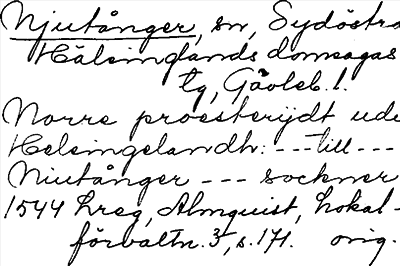 Njutånger, sn, Sydöstra
Hälsinglands domsagas
tg, Gävleb. l.
Norre proesterijdt udi
Helsingelandh: --- till ---
Niutånger --- sockner
1544 hreg, Almquist, Lokal-
förvaltn. 3, s. 171. orig.